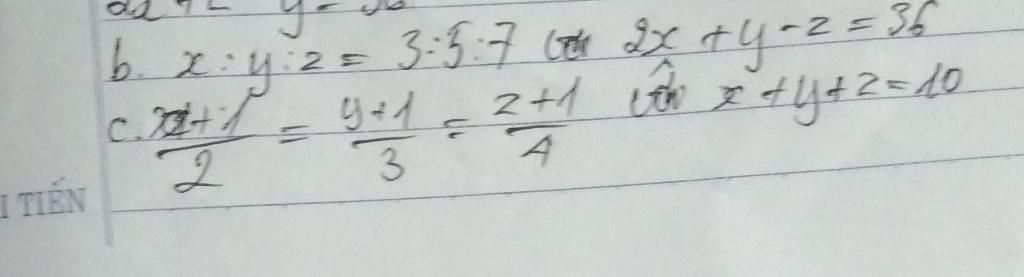 b. x : y : z = 3 : 5 : 7 và 2x + y - z = 36
c. x+1/2 = y+1/3 = z+1/4 và x + y + z = 10
I TIẾN